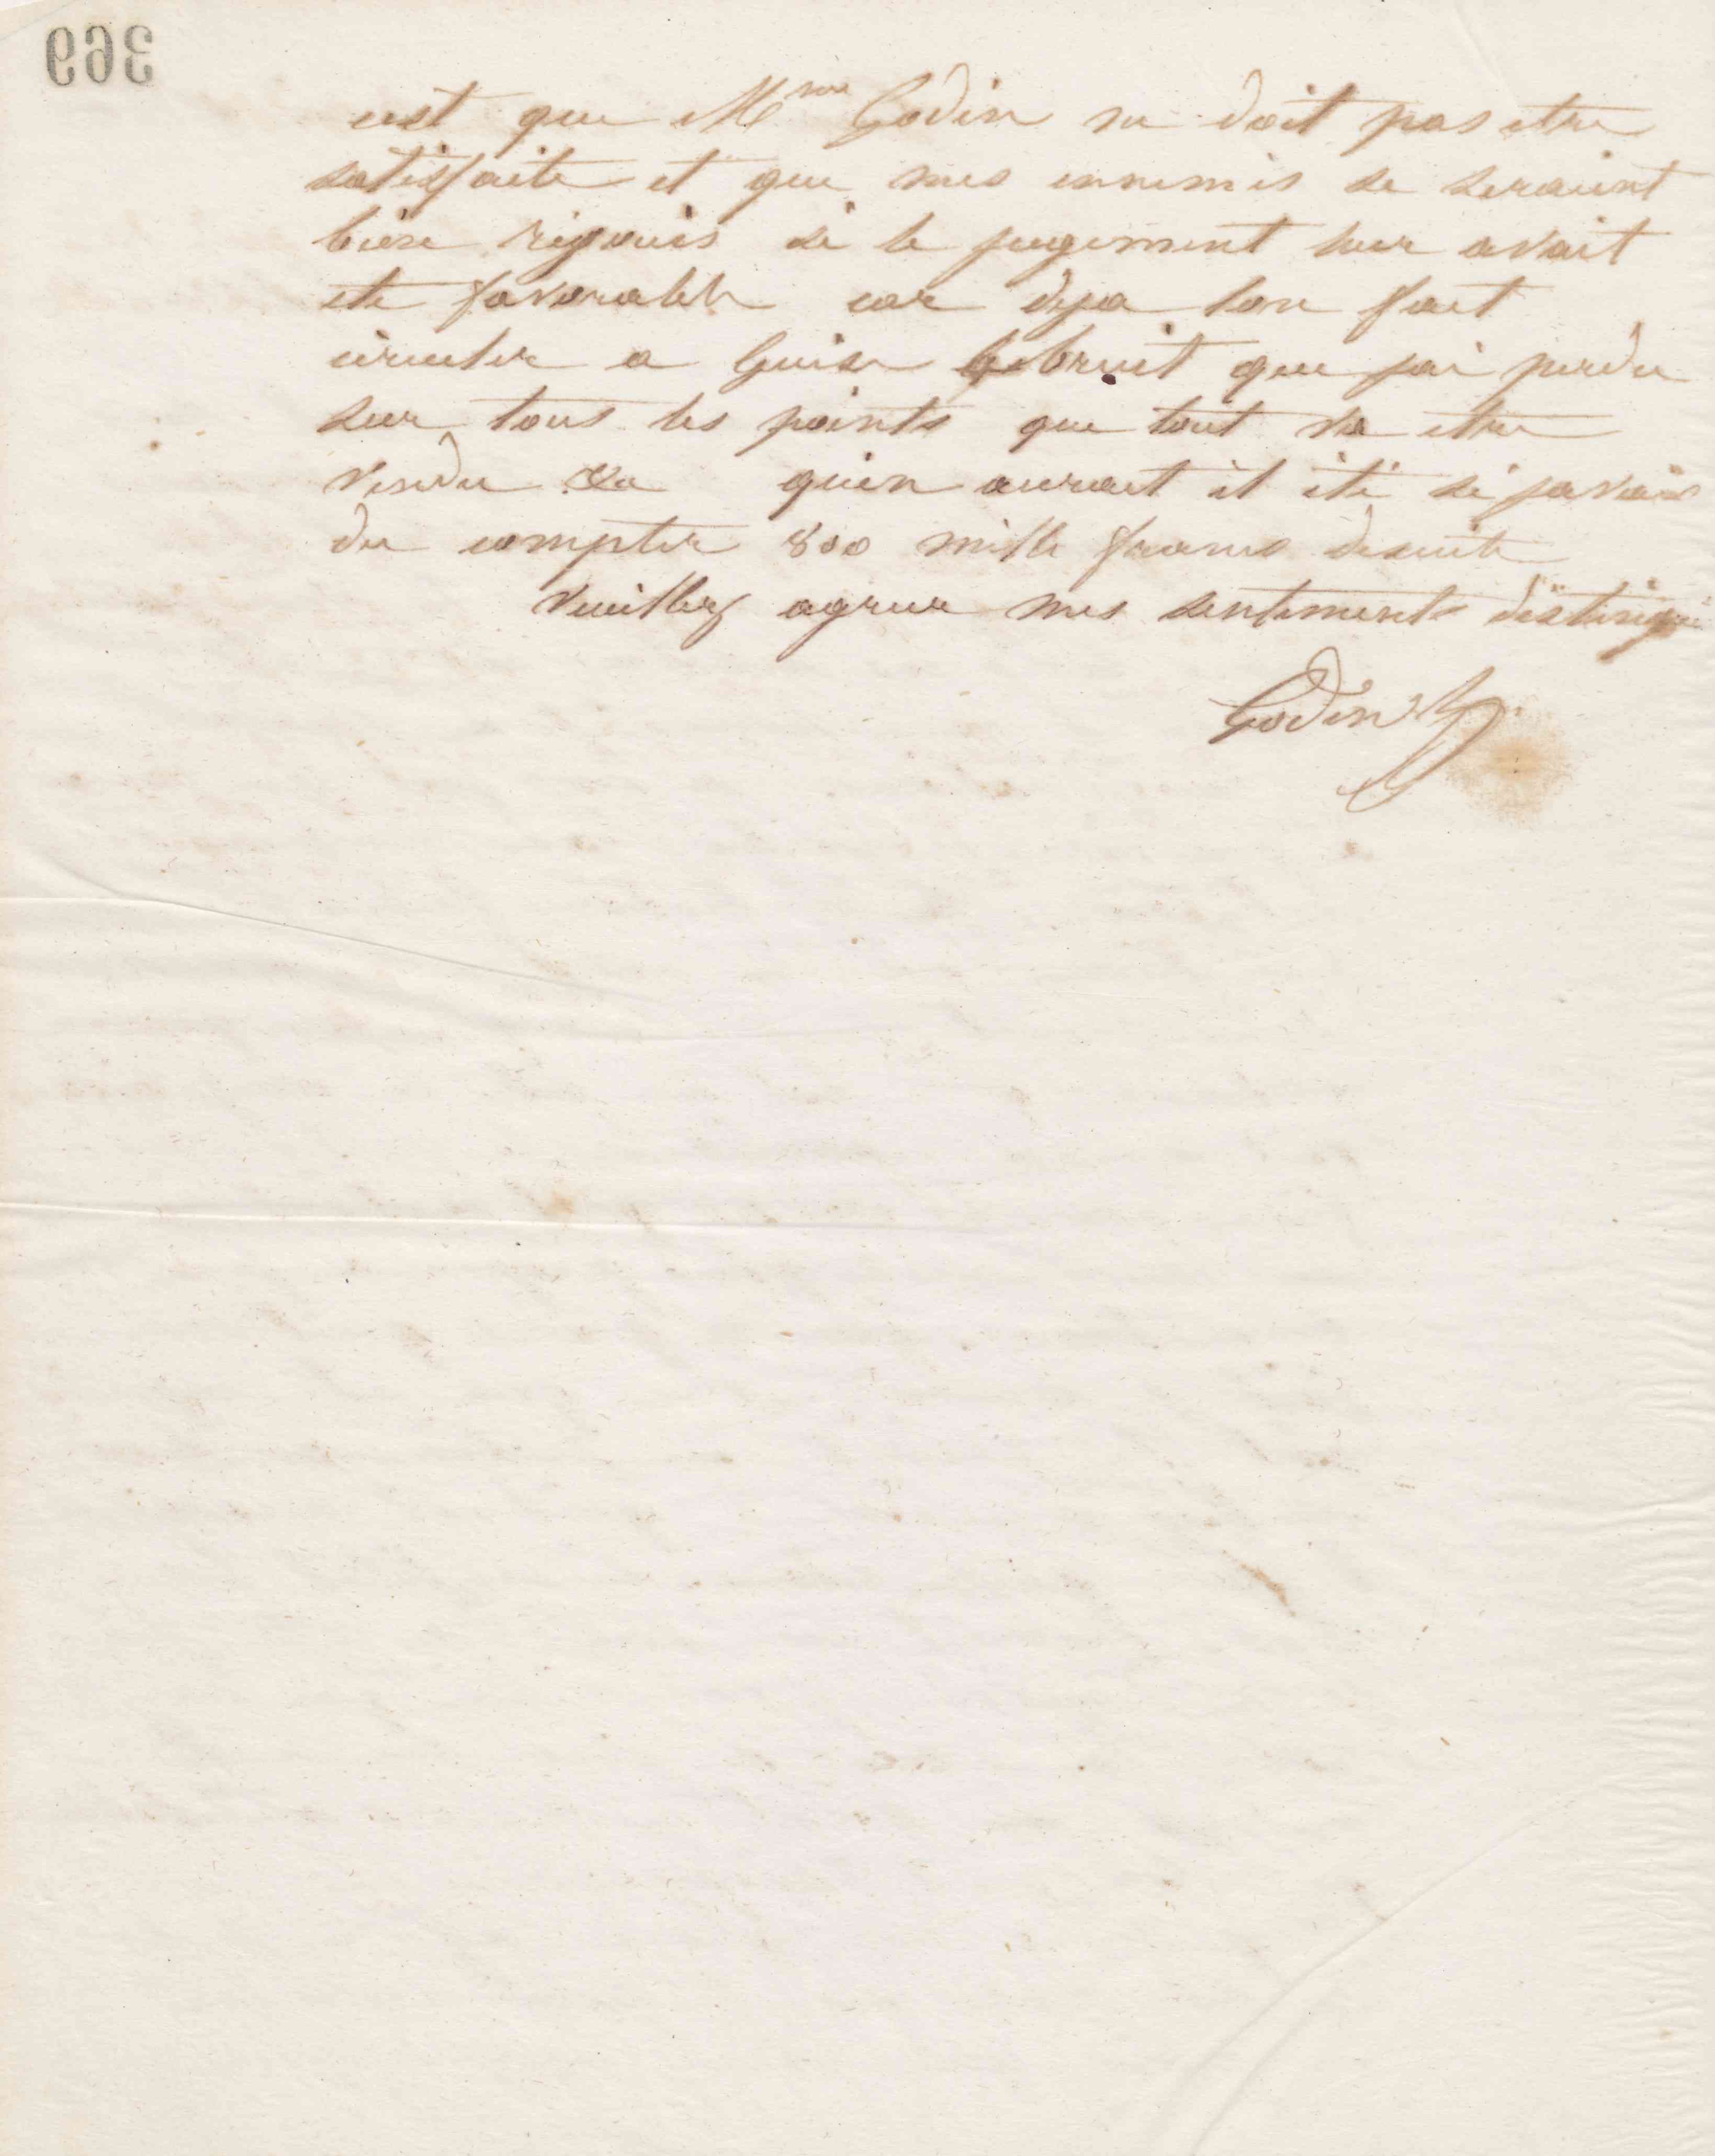 369
cest que Mme Godin ne doit pas etre
satisfaite et que mes ennemis se seraient
bien réjouis si le jugement leur avait
ete favorable car deja lon fait
circuler a Guise le bruit que jai perdu
sur tous les points que tout va etre
vendu &a quen aurait il été si javais
du compter 800 mille francs desuite
Veuillez agreer mes sentiments distingués
Godin